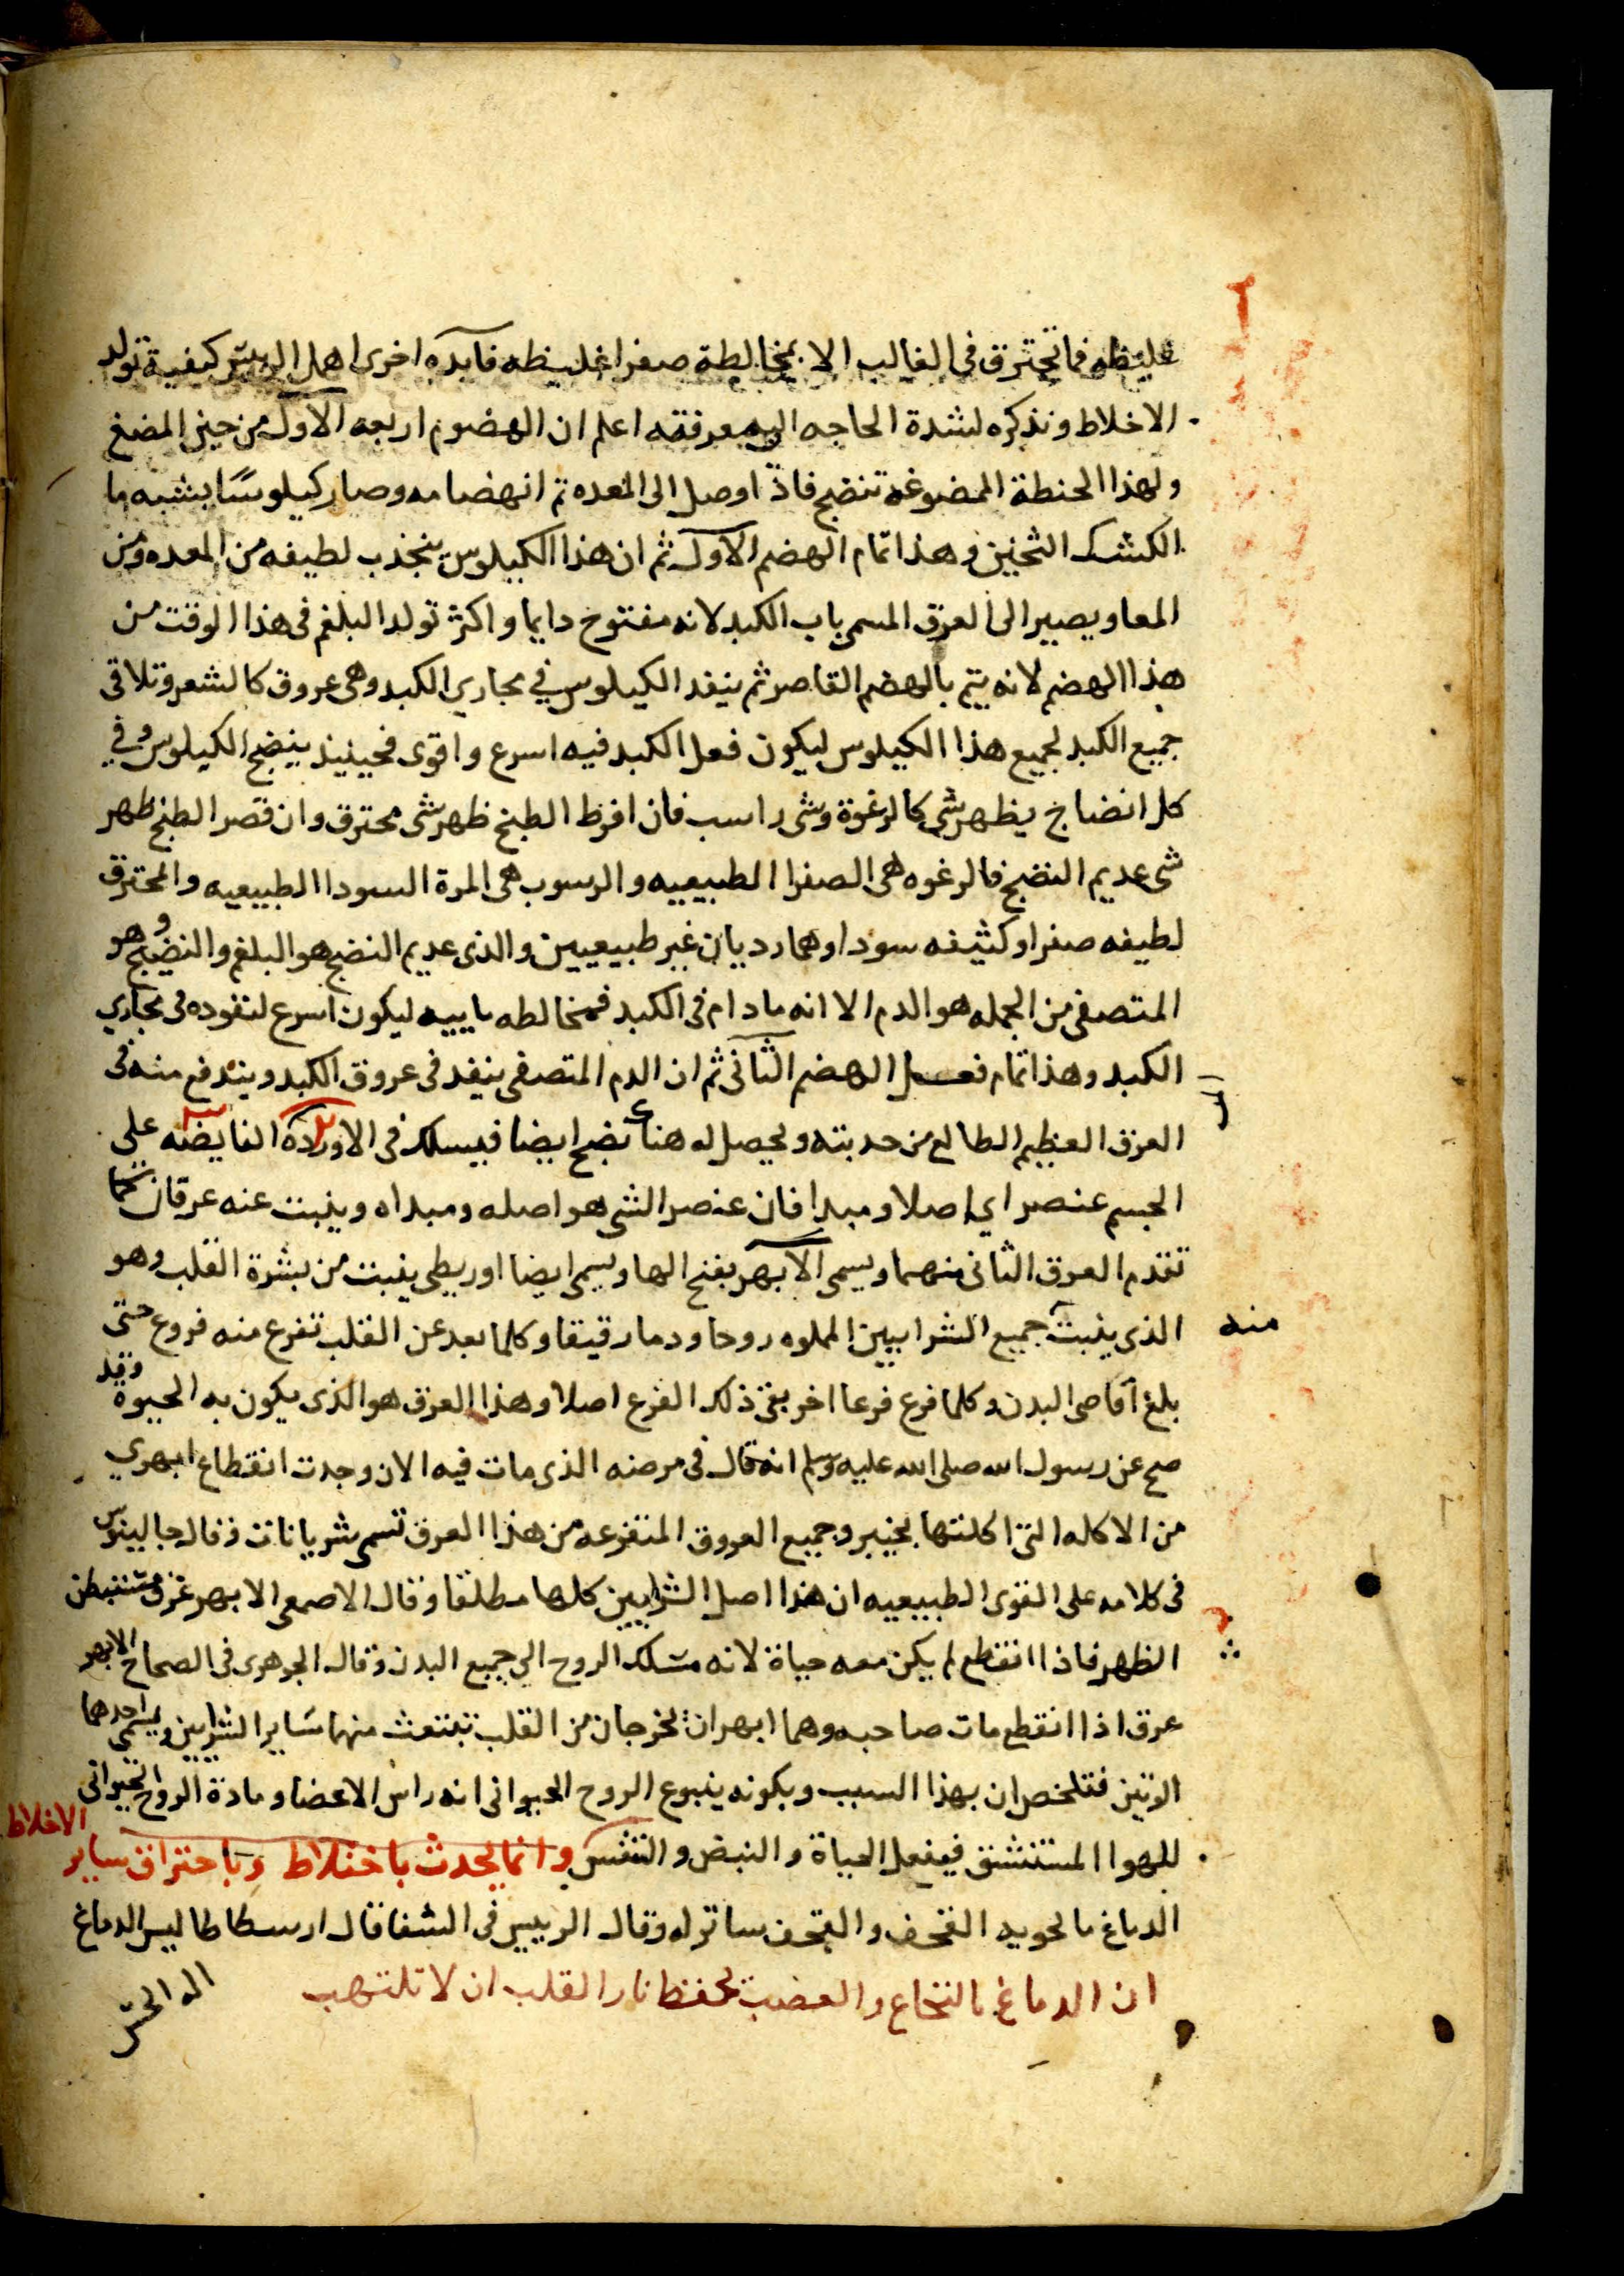 غليظه فما تحترق فى الغالب الا بمخالطة صفرا غليظه فايده اخرى اهمل الرييس كيفية تولد
الاخلاط ونذكره لشدة الحاجه الى معرفته اعلم ان الهضوم اربعه الاول من حين المضغ
ولهذا الحنطة الممضوغه تنضج فاذا وصل الى المعده تم انهضامه وصار كيلوسًا يشبه ما
الكشك الثخين وهذا تمام الهضم الاول ثم ان هذا الكيلوس ينجذب لطيفه من المعده ومن
المعا ويصير الى العرق المسمى باب الكبد لانه مفتوح دايما واكثر تولد البلغم فى هذا الوقت من
هذا الهضم لانه يتم بالهضم القاصر ثم ينفد الكيلوس في مجاري الكبد وهى عروق كالشعر وتلاقى
جميع الكبد لجميع هذا الكيلوس ليكون فعل الكبد فيه اسرع واقوى فحينيذ ينضج الكيلوس وفي
كل انضاج يظهر شى كالرغوة وشى راسب فان افرط الطبخ ظهر شى محترق وان قصر الطبخ ظهر
شى عديم النضج فالرغوه هى الصفرا الطبيعيه والرسوب هى المرة السودا الطبيعيه والمحترق
لطيفه صفرا وكثيفه سودا وهما رديان غير طبيعيين والذى عديم النضج هو البلغم والنضيج وهو
المتصفى من الجمله هو الدم الا انه مادام فى الكبد فمخالطه ماييه ليكون اسرع لنفوده فى مجاري
الكبد وهذا تمام فعل الهضم الثانى ثم ان الدم المتصفى ينفد فى عروق الكبد ويندفع منه فى
العرق العظيم الطالع من حدبته ويحصل له هناك نضج ايضا فيسلك فى الاوردة الفايضه على
الجسم عنصر اي اصلا ومبدا فان عنصر الشى هو اصله ومبداه وينبت عنه عرقان كما
تقدم العرق الثانى منهما ويسمى الابهر بفتح الها ويسمى ايضا اوريطى ينبت من بشرة القلب وهو
الذى ينبت جميع الشرايين المملوه روحا ودما رقيقا وكلما بعد عن القلب تفرع منه فروع حتى
منه
بلغ اقاصى البدن وكلما فرع فرعا اخر بقى ذلك الفرع اصلا وهذا العرق هو الذى يكون به الحيوة وقد
صح عن رسول الله صلى الله عليه وسلم انه قال فى مرضه الذى مات فيه الان وجدت انقطاع ابهري
من الاكله التى اكلتها بخيبر وجميع العروق المتفرعه من هذا العرق تسمى شريانات وقال جالينوس
فى كلامه على القوى الطبيعيه ان هذا اصل الشرايين كلها مطلقا وقال الاصمعى الابهر عرق مستبطن
الظهر فاذا انقطع لم يكن معه حياة لانه مسلك الروح الي جميع البدن وقال الجوهرى فى الصحاح الابهر
عرق اذا انقطع مات صاحبه وهما ابهران يخرجان من القلب تتشعث منهما ساير الشرايين ويسمى احدهما
الوتين فتلخص ان بهذا السبب وبكونه ينبوع الروح الحيوانى انه راس الاعضا ومادة الروح الحيوانى
للهوا المستنشق فيفعل الحياة والنبض والتنفس وانما يحدث باختلاط وباحتراق ساير الاخلاط
الدماغ ما يحويه القحف والقحف ساتر له وقال الرييس فى الشفا قال ارسطاطاليس الدماغ
ان الدماغ بالنخاع والعصب يحفظ نار القلب ان لا تلتهب